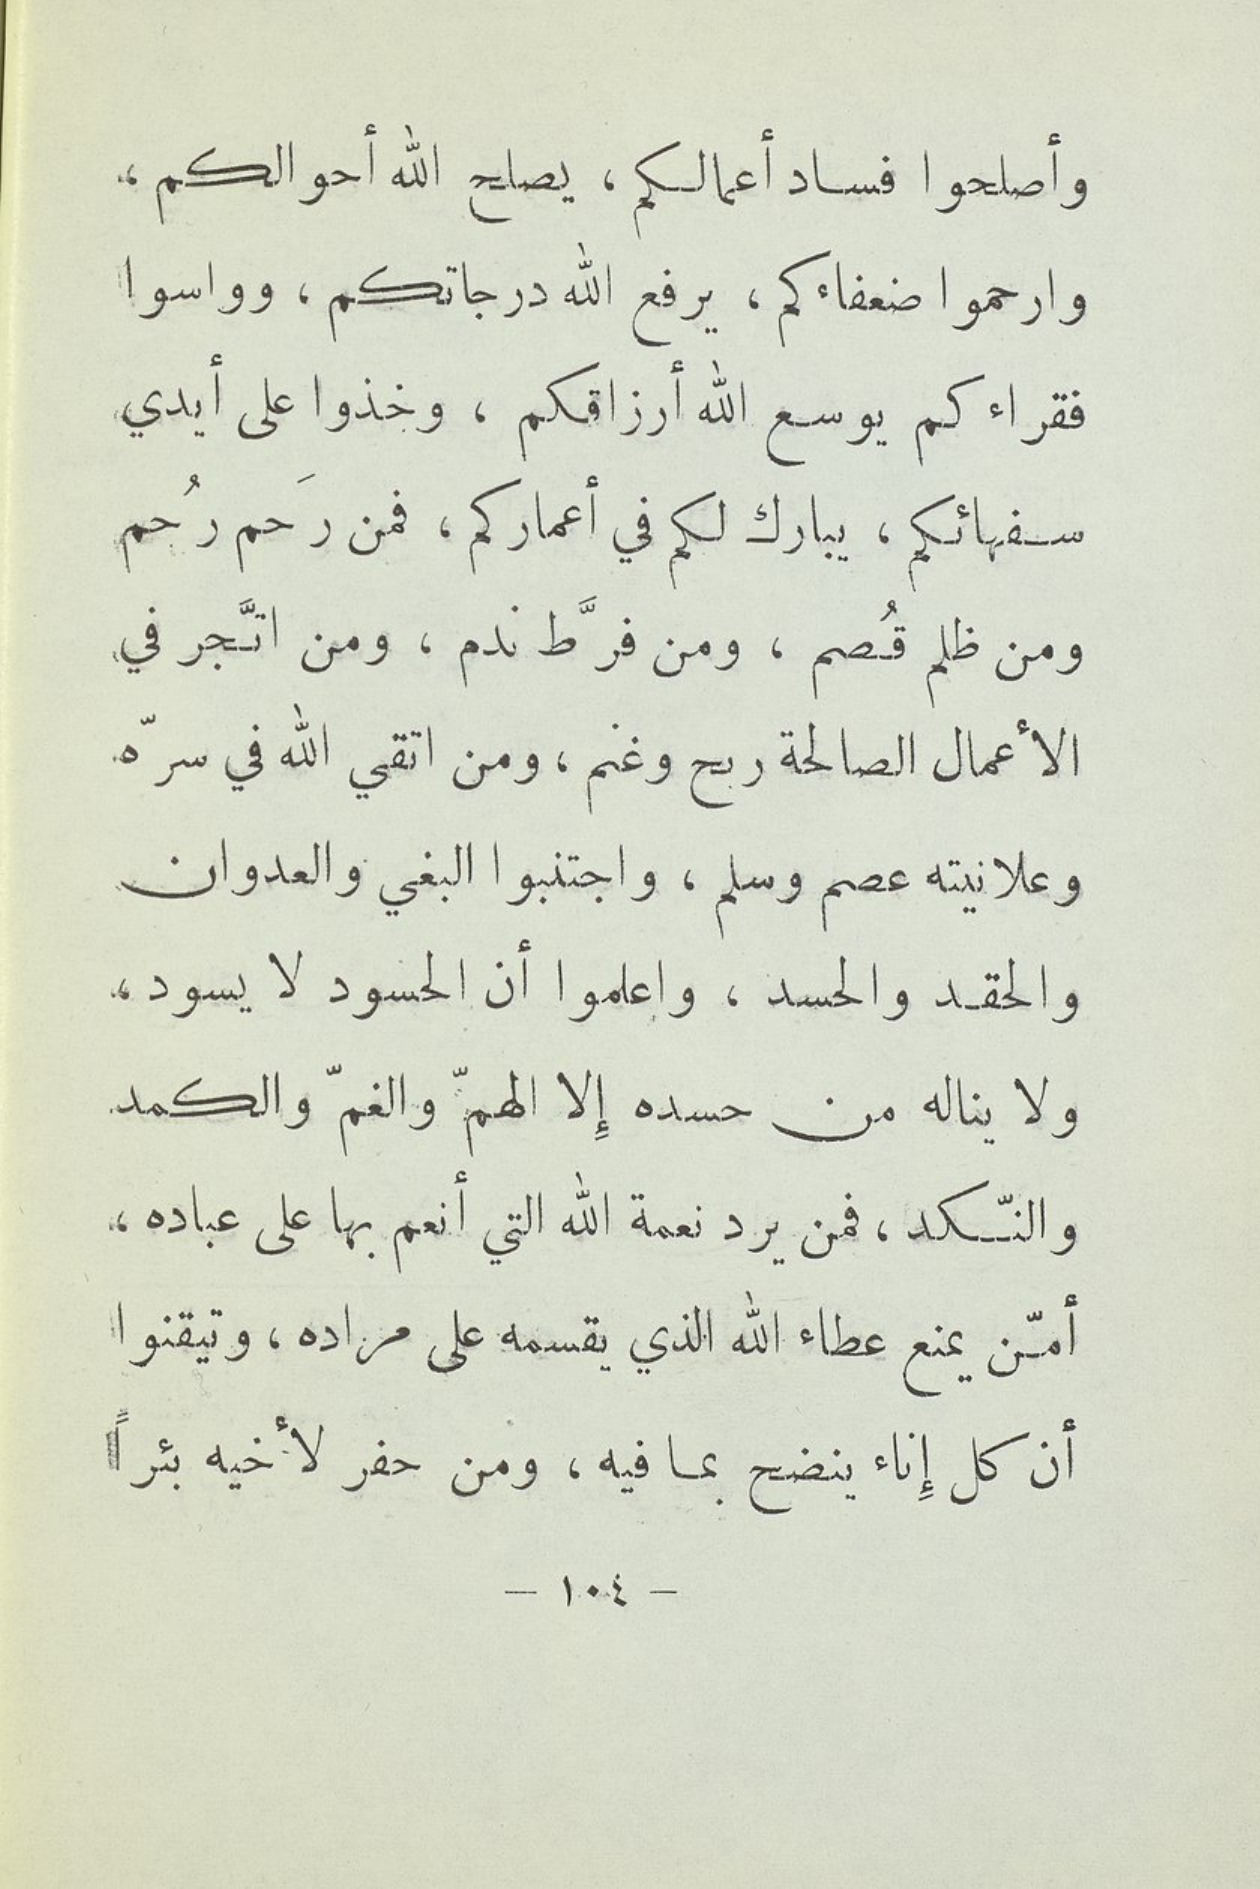 وأصلحوا فساد أعمالكم ، يصلح الله أحوالكم ،
وارحموا ضعفاءكم ، يرفع الله درجاتكم ، وواسوا
فقراءكم يوسع الله أرزاقكم ، وخذوا على أيدي
سفهائكم ، يبارك لكم في أعماركم ، فمن رَحم رُحم
ومن ظلم قُصم ، ومن فرَّط ندم ، ومن اتَّجر في
الأعمال الصالحة ربح وغنم ، ومن اتقي الله في سرّه
وعلانيته عصم وسلم ، واجتنبوا البغي والعدوان
والحقد والحسد ، واعلموا أن الحسود لا يسود ،
ولا يناله من حسده إِلا الهمّ والغمّ والكمد
والنّكد ، فمن يرد نعمة الله التي أنعم بها على عباده ،
أمّن يمنع عطاء الله الذي يقسمه على مراده ، وتيقنوا
أن كل إِناء ينضح بما فيه ، ومن حفر لأخيه بئراً
– ١٠٤ –